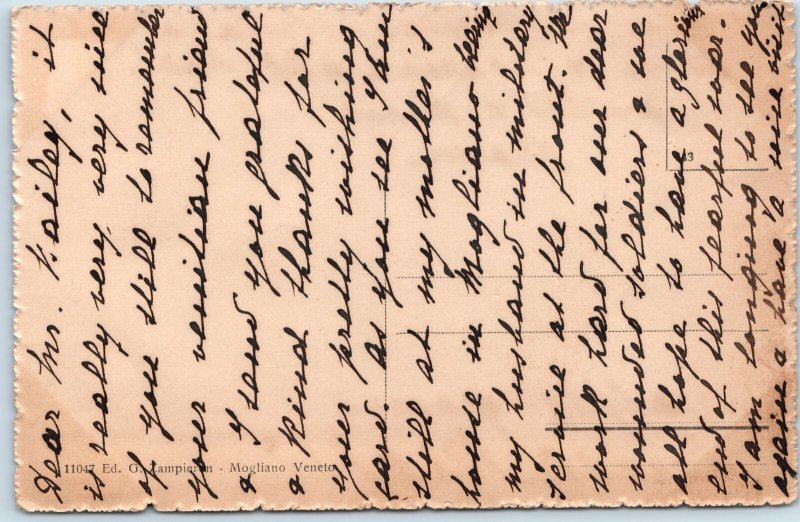 Dear Mr. Bailey, it
is really very, very nice
of you still to remember
your venitian friend
& I send you grateful
& kind thanks for
your pretty wishing
card. As you see I am
still at my mother's
house in Mogliano being
my husband in military
service at the front. We
work hard for our dear
wounded soldiers & we
all hope to have a glorious
end of this fearful war.
I am longing to see you
again & have a nice
11047 Ed. G. Zampieron - Mogliano Veneto